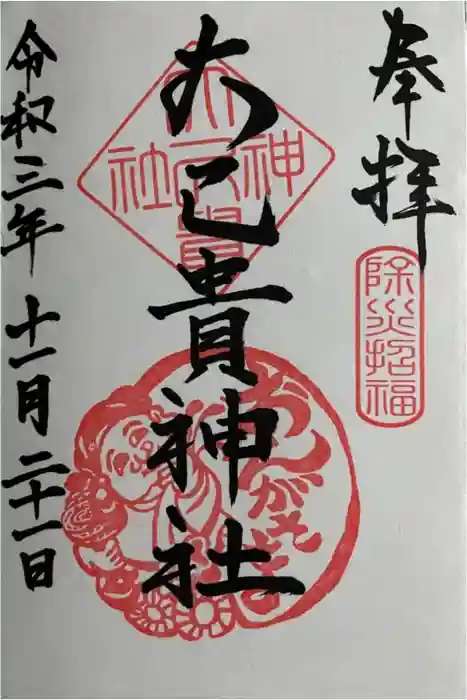 奉拝
除災招福
大己貴神社
大己貴神社
令和三年十一月二十一日